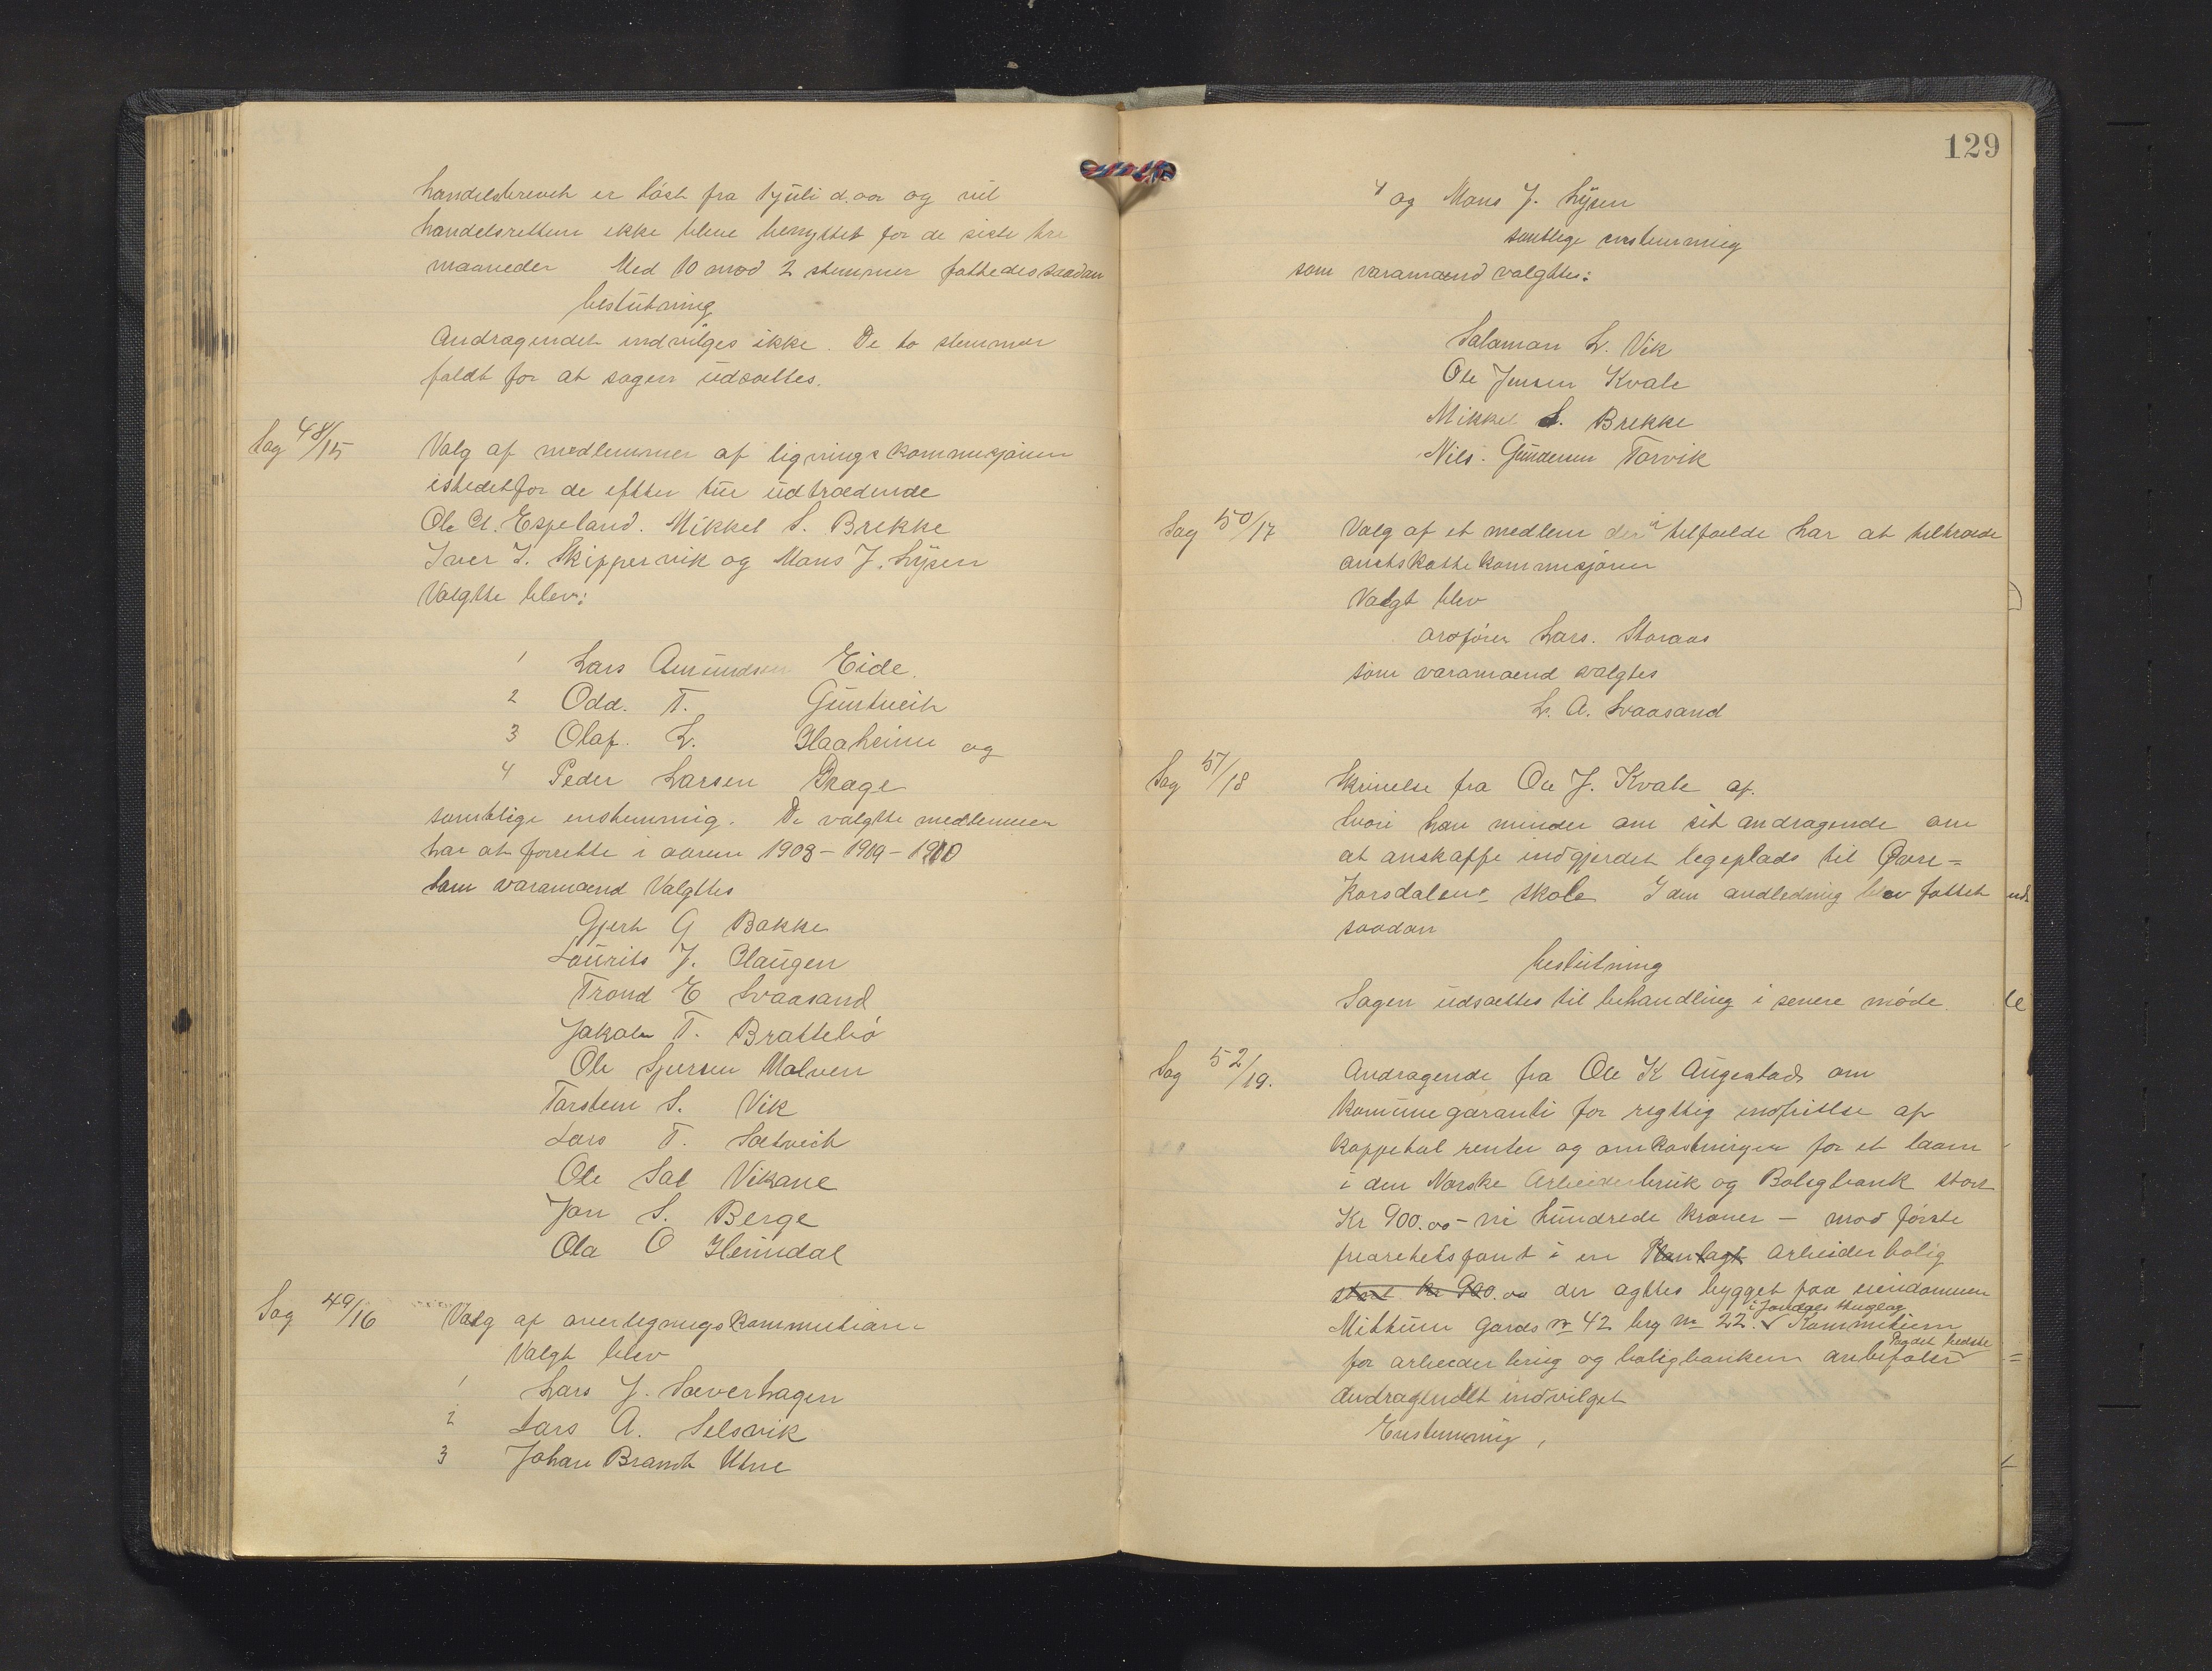 handelsbrevet er løst fra 1 juli d. aar og vil
handelsretten ikke blive benyttet for de siste tre
maaneder Med 10 mod 2 stemmer fattedes saadan
beslutning
Andragendet indvilges ikke. De to stemmer
faldt for at sagen udsættes.
Sag 48/15 Valg af medlemmer af lignings kommisjonen
istedetfor de efter tur udtrædende
Ole A. Espeland. Mikkel S. Brekke
Iver I. Skippervik og Mons J. Lÿsen
Valgtte blev:
1 Lars Amundsen Eide.
2 Odd. T. Guntveit
3 Olaf. L. Haaheim og
4 Peder Larsen Drage
samtlige enstemmig. De valgtte medlemmer
har at forrette i aarene 1908-1909-1910
Som varamænd Valgttes
Gjert G Bakke
Laurits J. Haugen
Trond E Svaasand
Jakob T. Brattebø
Ole Sjursen Malven
Torstein S. Vik
Lars T. Sætveit
Ole Sal Vikane
Jon S. Berge
Ola O Herindal
Sag 49/16 Valg af overlignings kommution
Valgt blev
1 Lars J. Sæverhagen
2 Lars A. Selsvik
3 Johan Brandt Utne
129
4 og Mons J. Lÿsen
samtlige enstemmig
som varamænd valgttes:
Salamon L. Vik
Ole Jensen Kvale
Mikkel S. Brekke
Nils. Gundersen Torvik
Sag 50/17 Valg af et medlem der i tilfælde har at tiltræde
amtskattekommisjonen
Valgt blev
ordfører Lars. Storaas
som varamænd valgtes
L. A. Svaasand
Sag 51/18 Skrivelse fra Ole J. Kvale af.
hvori han minder om sit andragende om
at anskaffe indgjerdet legeplads til Øvre=
Korsdalens skole I den andledning blev fattet
saadan
beslutning
Sagen udsættes til behandling i senere møde.
Sag 52/19. Andragende fra Ole K Augestad om
komune garanti for rigttig indfrielse af
kappetal renter og omkostninger for et laan
i den Norske Arbeiderbruk og Boligbank stort
Kr 900.00 - ni hundrede kroner - mod første
prioretetspant i en Planlagt arbeiderbolig
stort kr 900.00 der agttes bygget paa eiendommen
Mittun Gards No 42 brg No 22. i Jondges thuglag Kommiteen
for arbeider brug og boligbanken anbefaler Paadet bedste
Andragendet indvilget
Enstemmig,